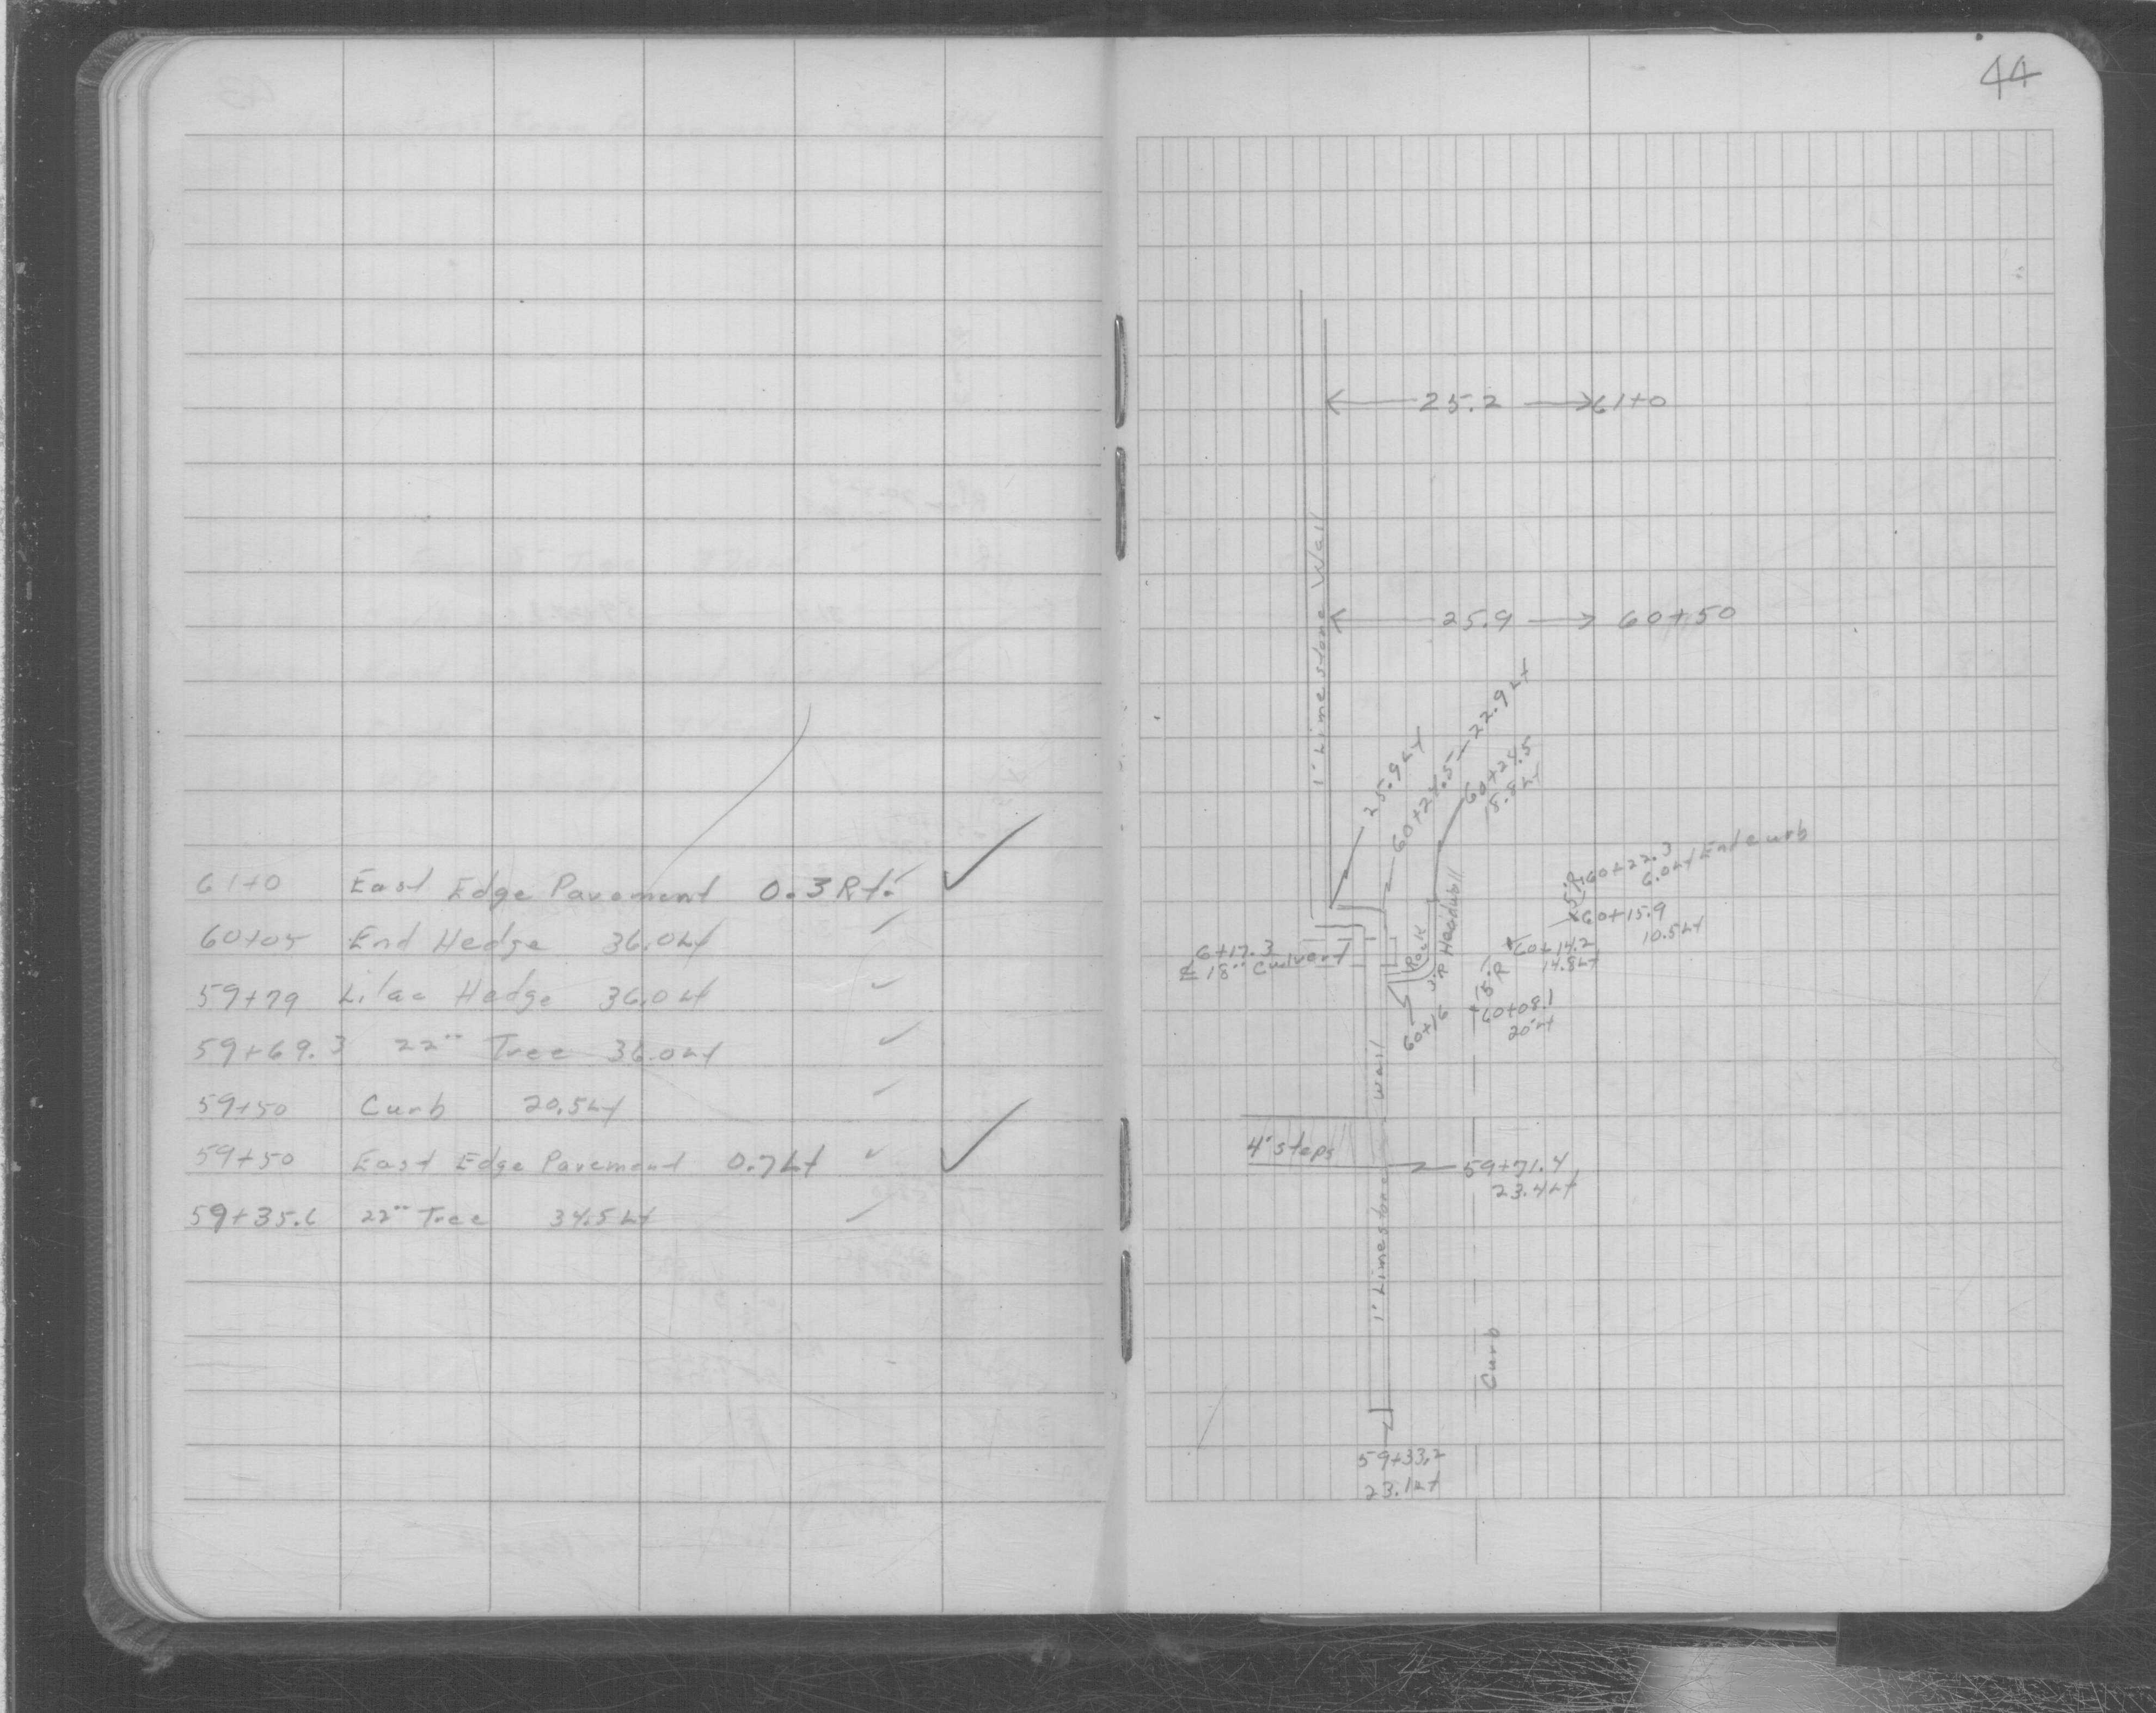 44
61+0 East Edge Pavement 0.3 Rt. ✓
60+05 End Hedge 36.0Lt ✓
59+79 Lilac Hedge 36.0Lt ✓
59+69.3 22" Tree 36.0Lt ✓
59+50 Curb 20.5Lt ✓
59+50 East Edge Pavement 0.7Lt ✓
59+35.6 22" Tree 34.5Lt ✓
25.2 61+0
1' Limestone Wall
25.9 60+50
25.9Lt
60+24.5 - 22.9Lt
60+24.5
15.8Lt
60+22.3
6.0Lt End curb
5'R
60+15.9
10.5Lt
60+14.2
14.8Lt
15'R
60+08.1
20'Lt
Rock Headwall
3'R
6+17.3
℄ 18" Culvert
60+16
4' steps
59+71.4
23.4Lt
1' Limestone Wall
Curb
59+33.2
23.1Lt